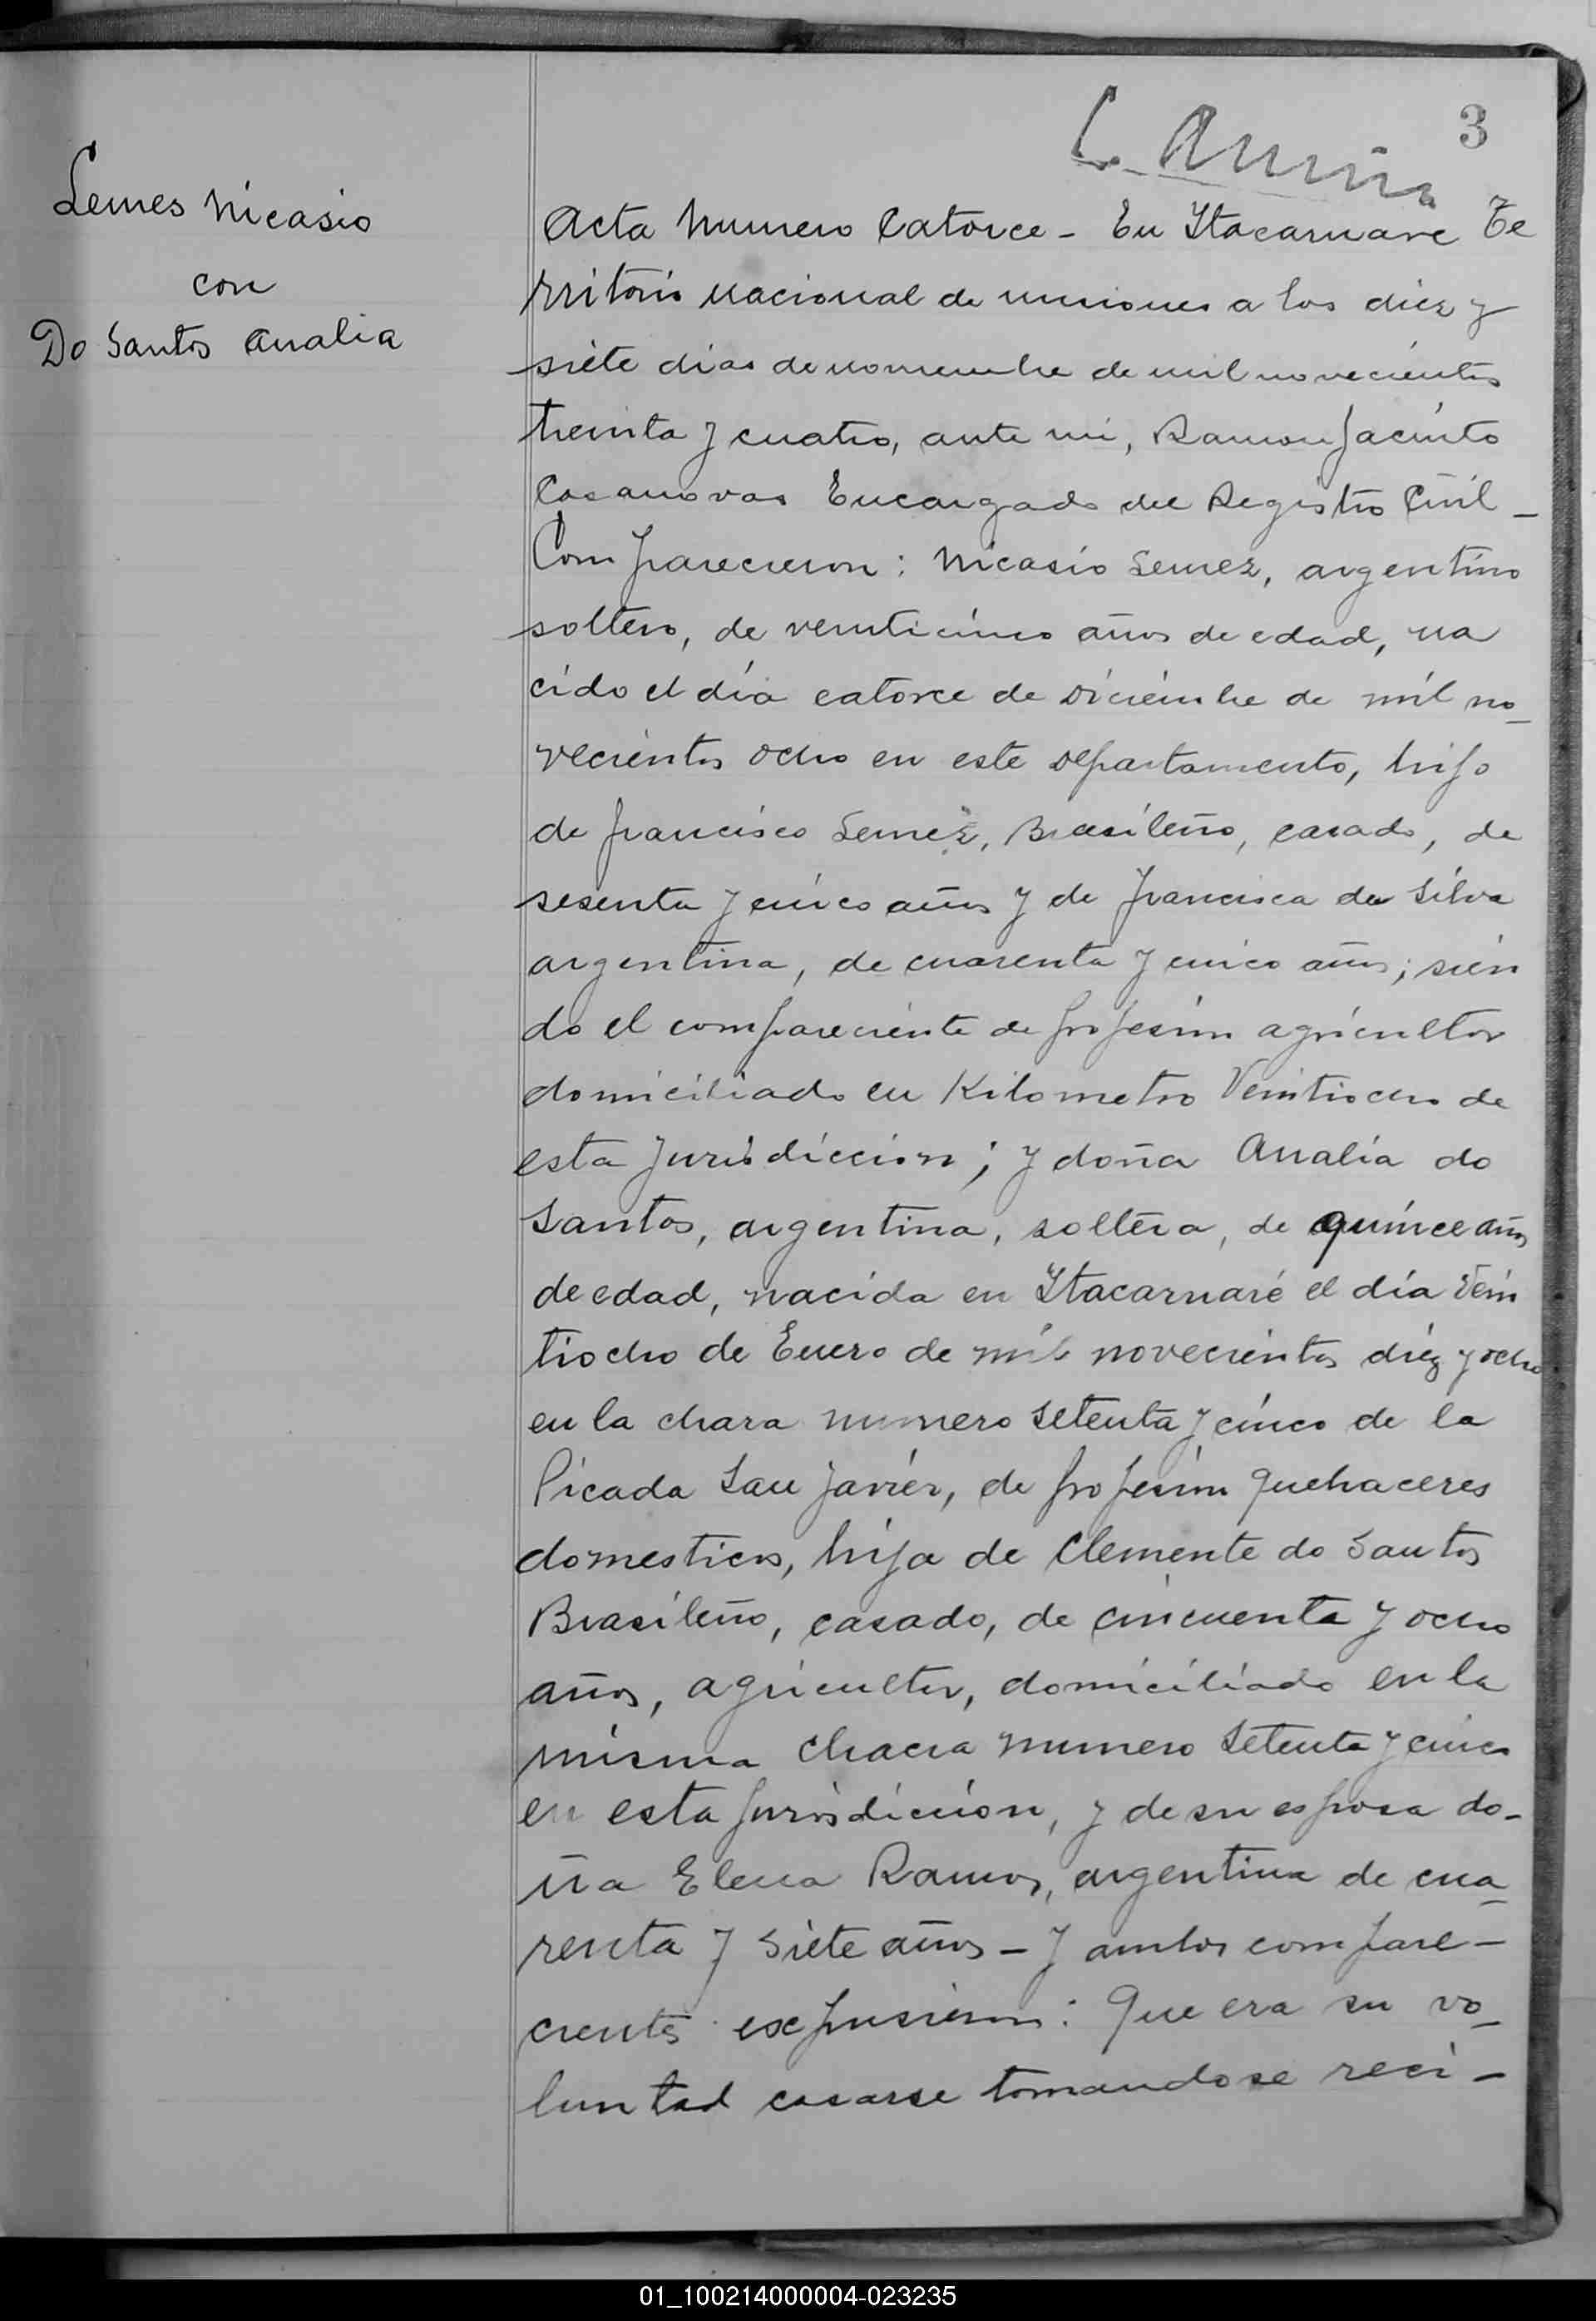 3
Lemes Nicasio
con
Do Santos Analia
Acta Numero Catorce - En Itacaruare Te
rritorio nacional de misiones a los diez y
siete dias de noviembre de mil novecientos
treinta y cuatro, ante mi, Ramon Jacinto
Casanovas Encargado del Registro Civil -
Comparecieron: Nicasio Lemez, argentino
soltero, de veinticinco años de edad, na
cido el día catorce de Diciembre de mil no-
vecientos ocho en este departamento, hijo
de francisco Lemez, Brasileño, casado, de
sesenta y cinco años y de francisca da Silva
argentina, de cuarenta y cinco años; sien
do el compareciente de profesión agricultor
domiciliado en Kilometro Veintiocho de
esta Jurisdicción; y doña Analia do
Santos, argentina, soltera, de quince años
de edad, nacida en Itacaruaré el día vein
tiocho de Enero de mil novecientos diez y ocho
en la chara numero setenta y cinco de la
Picada San Javier, de profesión quehaceres
domesticos, hija de Clemente do Santos
Brasileño, casado, de cincuenta y ocho
años, agricultor, domiciliado en la
misma Chacra numero setenta y cinco
en esta Jurisdiccion, y de su esposa do-
ña Elena Ramos, argentina de cua-
renta y siete años - y ambos compare-
cientes expusieron: Que era su vo-
luntad casarse tomandose reci-
01_100214000004-023235